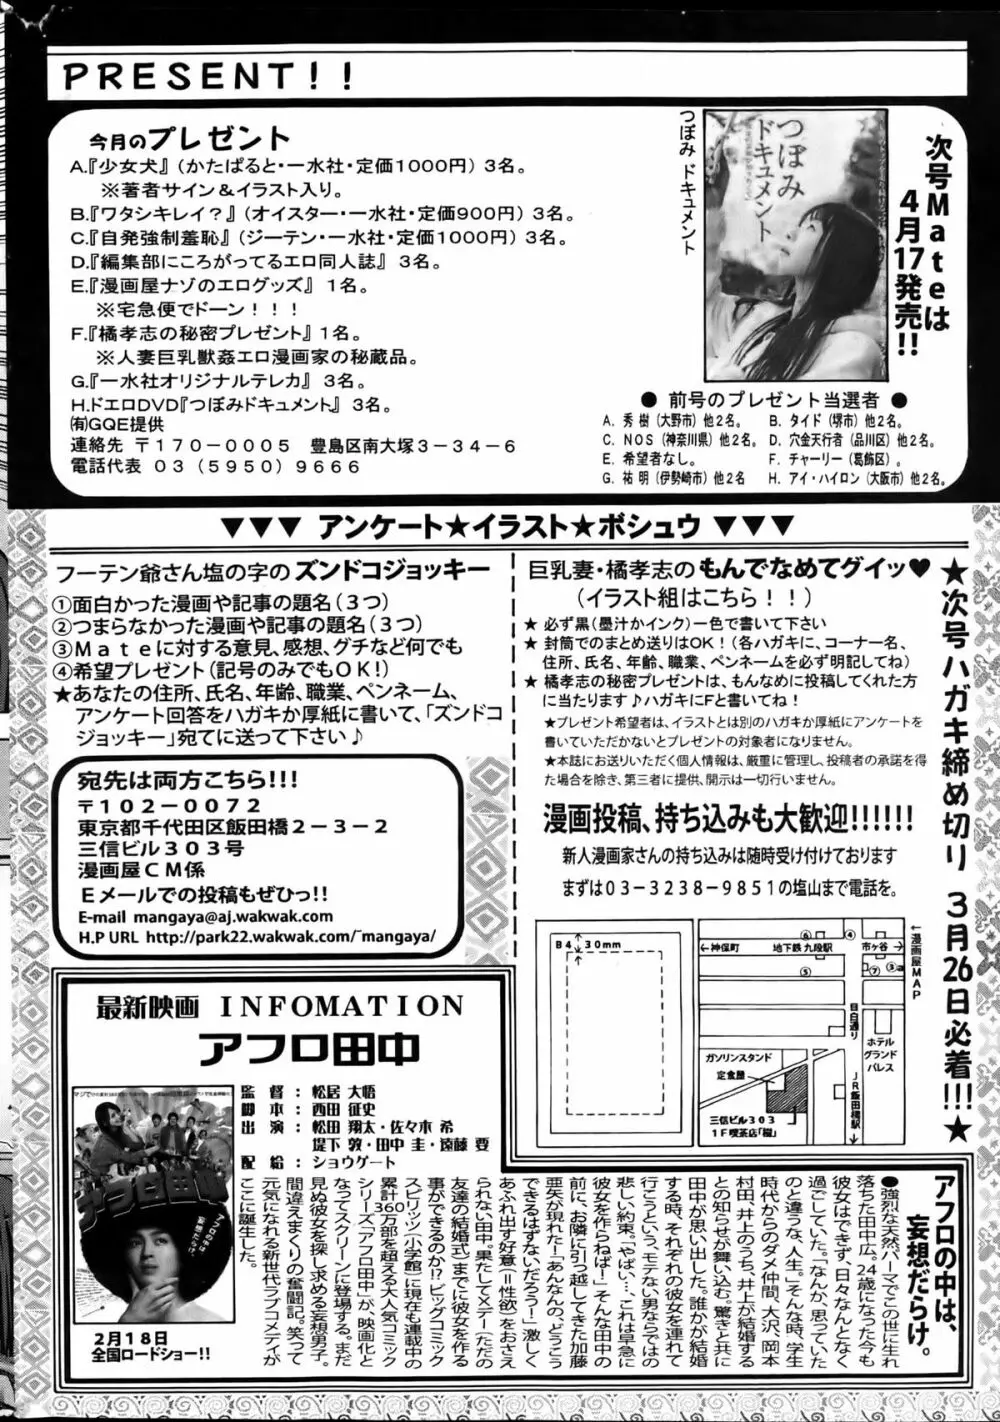 PRESENT!!
今月のプレゼント
A.『少女犬』(かたぱると・一水社・定価1000円) 3名。
※著者サイン&イラスト入り。
B.『ワタシキレイ?』(オイスター・一水社・定価900円) 3名。
C.『自発強制羞恥』(ジーテン・一水社・定価1000円) 3名。
D.『編集部にころがってるエロ同人誌』 3名。
E.『漫画屋ナゾのエログッズ』 1名。
※宅急便でドーン!!!
F.『橘孝志の秘密プレゼント』 1名。
※人妻巨乳獣姦エロ漫画家の秘蔵品。
G.『一水社オリジナルテレカ』 3名。
H.ドエロDVD『つぼみドキュメント』 3名。
㈲GQE提供
連絡先 〒170-0005 豊島区南大塚3-34-6
電話代表 03(5950)9666
つぼみ ドキュメント
つぼみ
ドキュメント
次号Mateは
4月17発売!!
● 前号のプレゼント当選者 ●
A. 秀樹 (大野市) 他2名。 B. タイド (堺市) 他2名。
C. NOS (神奈川県) 他2名。 D. 穴金天行者 (品川区) 他2名。
E. 希望者なし。 F. チャーリー (葛飾区) 。
G. 祐明 (伊勢崎市) 他2名 H. アイ・ハイロン (大阪市) 他2名。
▼▼▼ アンケート★イラスト★ボシュウ ▼▼▼
フーテン爺さん塩の字の ズンドコジョッキー
①面白かった漫画や記事の題名(3つ)
②つまらなかった漫画や記事の題名(3つ)
③Mateに対する意見、感想、グチなど何でも
④希望プレゼント(記号のみでもOK!)
★あなたの住所、氏名、年齢、職業、ペンネーム、
アンケート回答をハガキか厚紙に書いて、「ズンドコ
ジョッキー」宛てに送って下さい♪
宛先は両方こちら!!!
〒102-0072
東京都千代田区飯田橋2-3-2
三信ビル303号
漫画屋CM係
Eメールでの投稿もぜひっ!!
E-mail mangaya@aj.wakwak.com
H.P URL http://park22.wakwak.com/~mangaya/
巨乳妻・橘孝志の もんでなめてグイッ♥
(イラスト組はこちら!!)
★ 必ず黒(墨汁かインク)一色で書いて下さい
★ 封筒でのまとめ送りはOK!(各ハガキに、コーナー名、
住所、氏名、年齢、職業、ペンネームを必ず明記してね)
★ 橘孝志の秘密プレゼントは、もんなめに投稿してくれた方
に当たります♪ハガキにFと書いてね!
★プレゼント希望者は、イラストとは別のハガキか厚紙にアンケートを
書いていただかないとプレゼントの対象者になりません。
★本誌にお送りいただく個人情報は、厳重に管理し、投稿者の承諾を得
た場合を除き、第三者に提供、開示は一切行いません。
漫画投稿、持ち込みも大歓迎!!!!!!
新人漫画家さんの持ち込みは随時受け付けております
まずは03-3238-9851の塩山まで電話を。
B4
30mm
←神保町
地下鉄 九段駅
⑥
④
市ヶ谷→
⑤
⑦
③
目白通り
ホテル
グランド
パレス
ガソリンスタンド
定食屋
三信ビル303
1F喫茶店「榴」
JR飯田橋駅
←漫画屋MAP
★次号ハガキ締め切り 3月26日必着!!!★
最新映画 INFOMATION
アフロ田中
監督:松居 大悟
脚本:西田 征史
出演:松田 翔太・佐々木 希
堤下 敦・田中 圭・遠藤 要
配給:ショウゲート
アフロ田中
2月18日
全国ロードショー!!
アフロの中は、
妄想だらけ。
●強烈な天然パーマでこの世に生れ
落ちた田中広。24歳になった今も
彼女はできず、日々なんとなく
過ごしていた。「なんか、思っていた
のと違うな、人生。」そんな時、学生
時代からのダメ仲間、大沢、岡本
村田、井上のうち、井上が結婚する
との知らせが舞い込む。驚きと共に
田中が思い出した。誰かが結婚
する時、それぞれの彼女を連れて
行こうという、モテない男ならではの
悲しい約束。「やばい…、これは早急に
彼女を作らねば!」そんな田中の
前に、お隣に引っ越してきた加藤
亜矢が現れた!「あんなの。どうこう
できるはずないだろうー!」激しく
あふれ出す好意(=性欲)をおさえ
られない田中。果たしてXデー(ただの
友達の結婚式)までに彼女を作る
事ができるのか!?ビッグコミック
スピリッツ(小学館)に現在も連載中の
累計360万部を超える大人気コミック
シリーズ「アフロ田中」が、映画化と
なってスクリーンに登場する。まだ
見ぬ彼女を探し求める妄想男子。
間違えまくりの奮闘記。笑って
元気になれる新世代ラブコメディが
ここに誕生した。